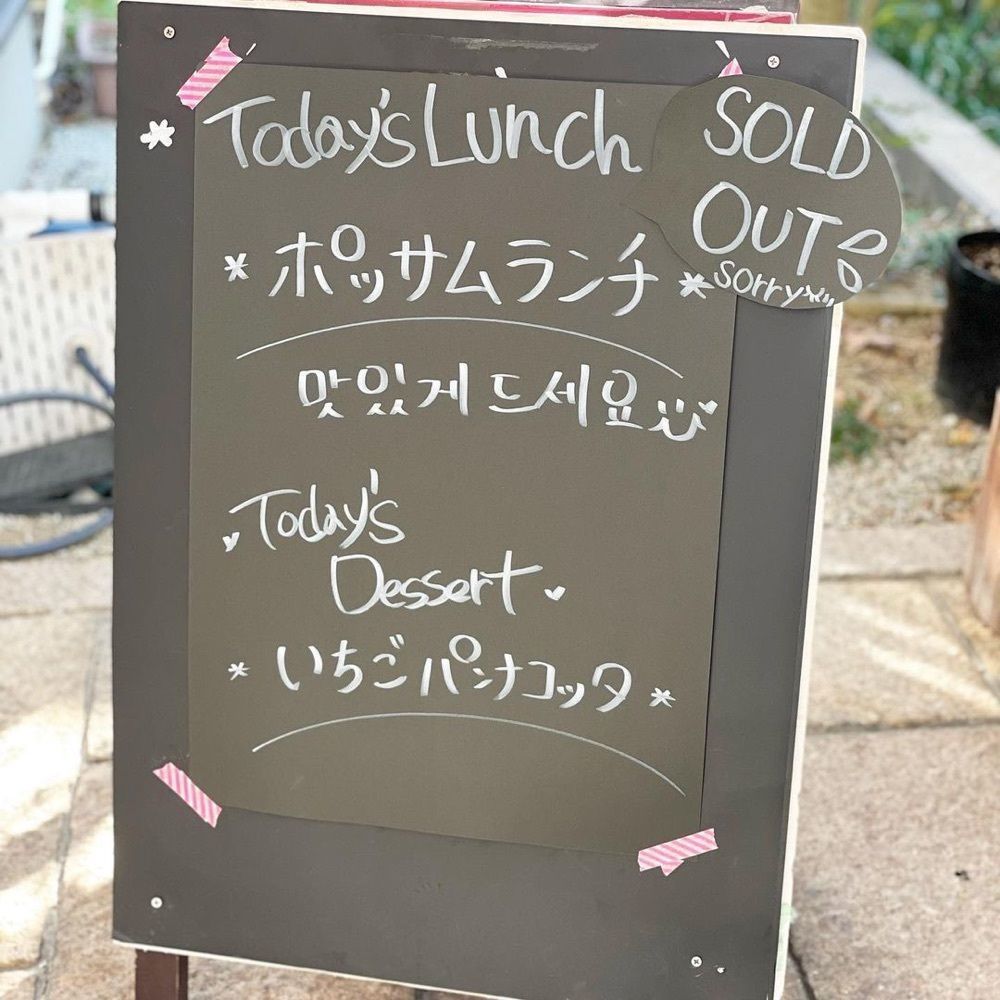 Today's Lunch
SOLD
OUT
sorry
ポッサムランチ
맛있게 드세요
Today's
Dessert
いちごパンナコッタ